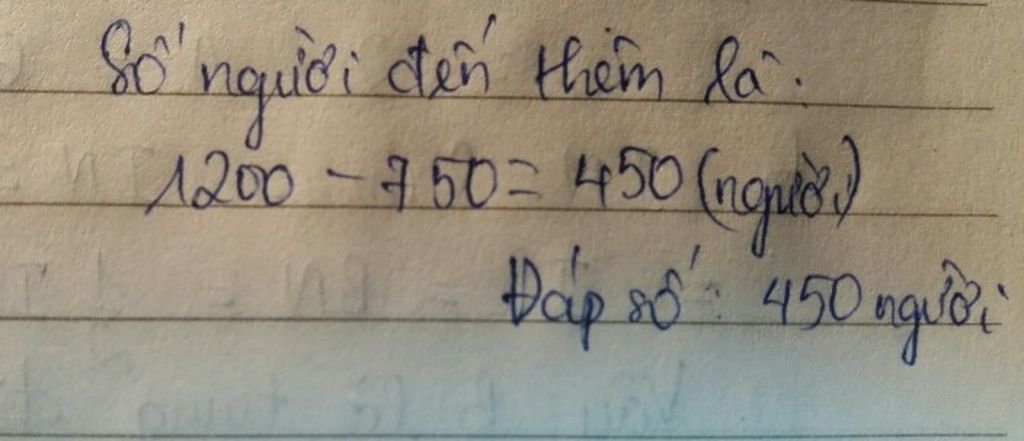 Số người đến thêm là:
1200 - 750 = 450 (người)
Đáp số: 450 người